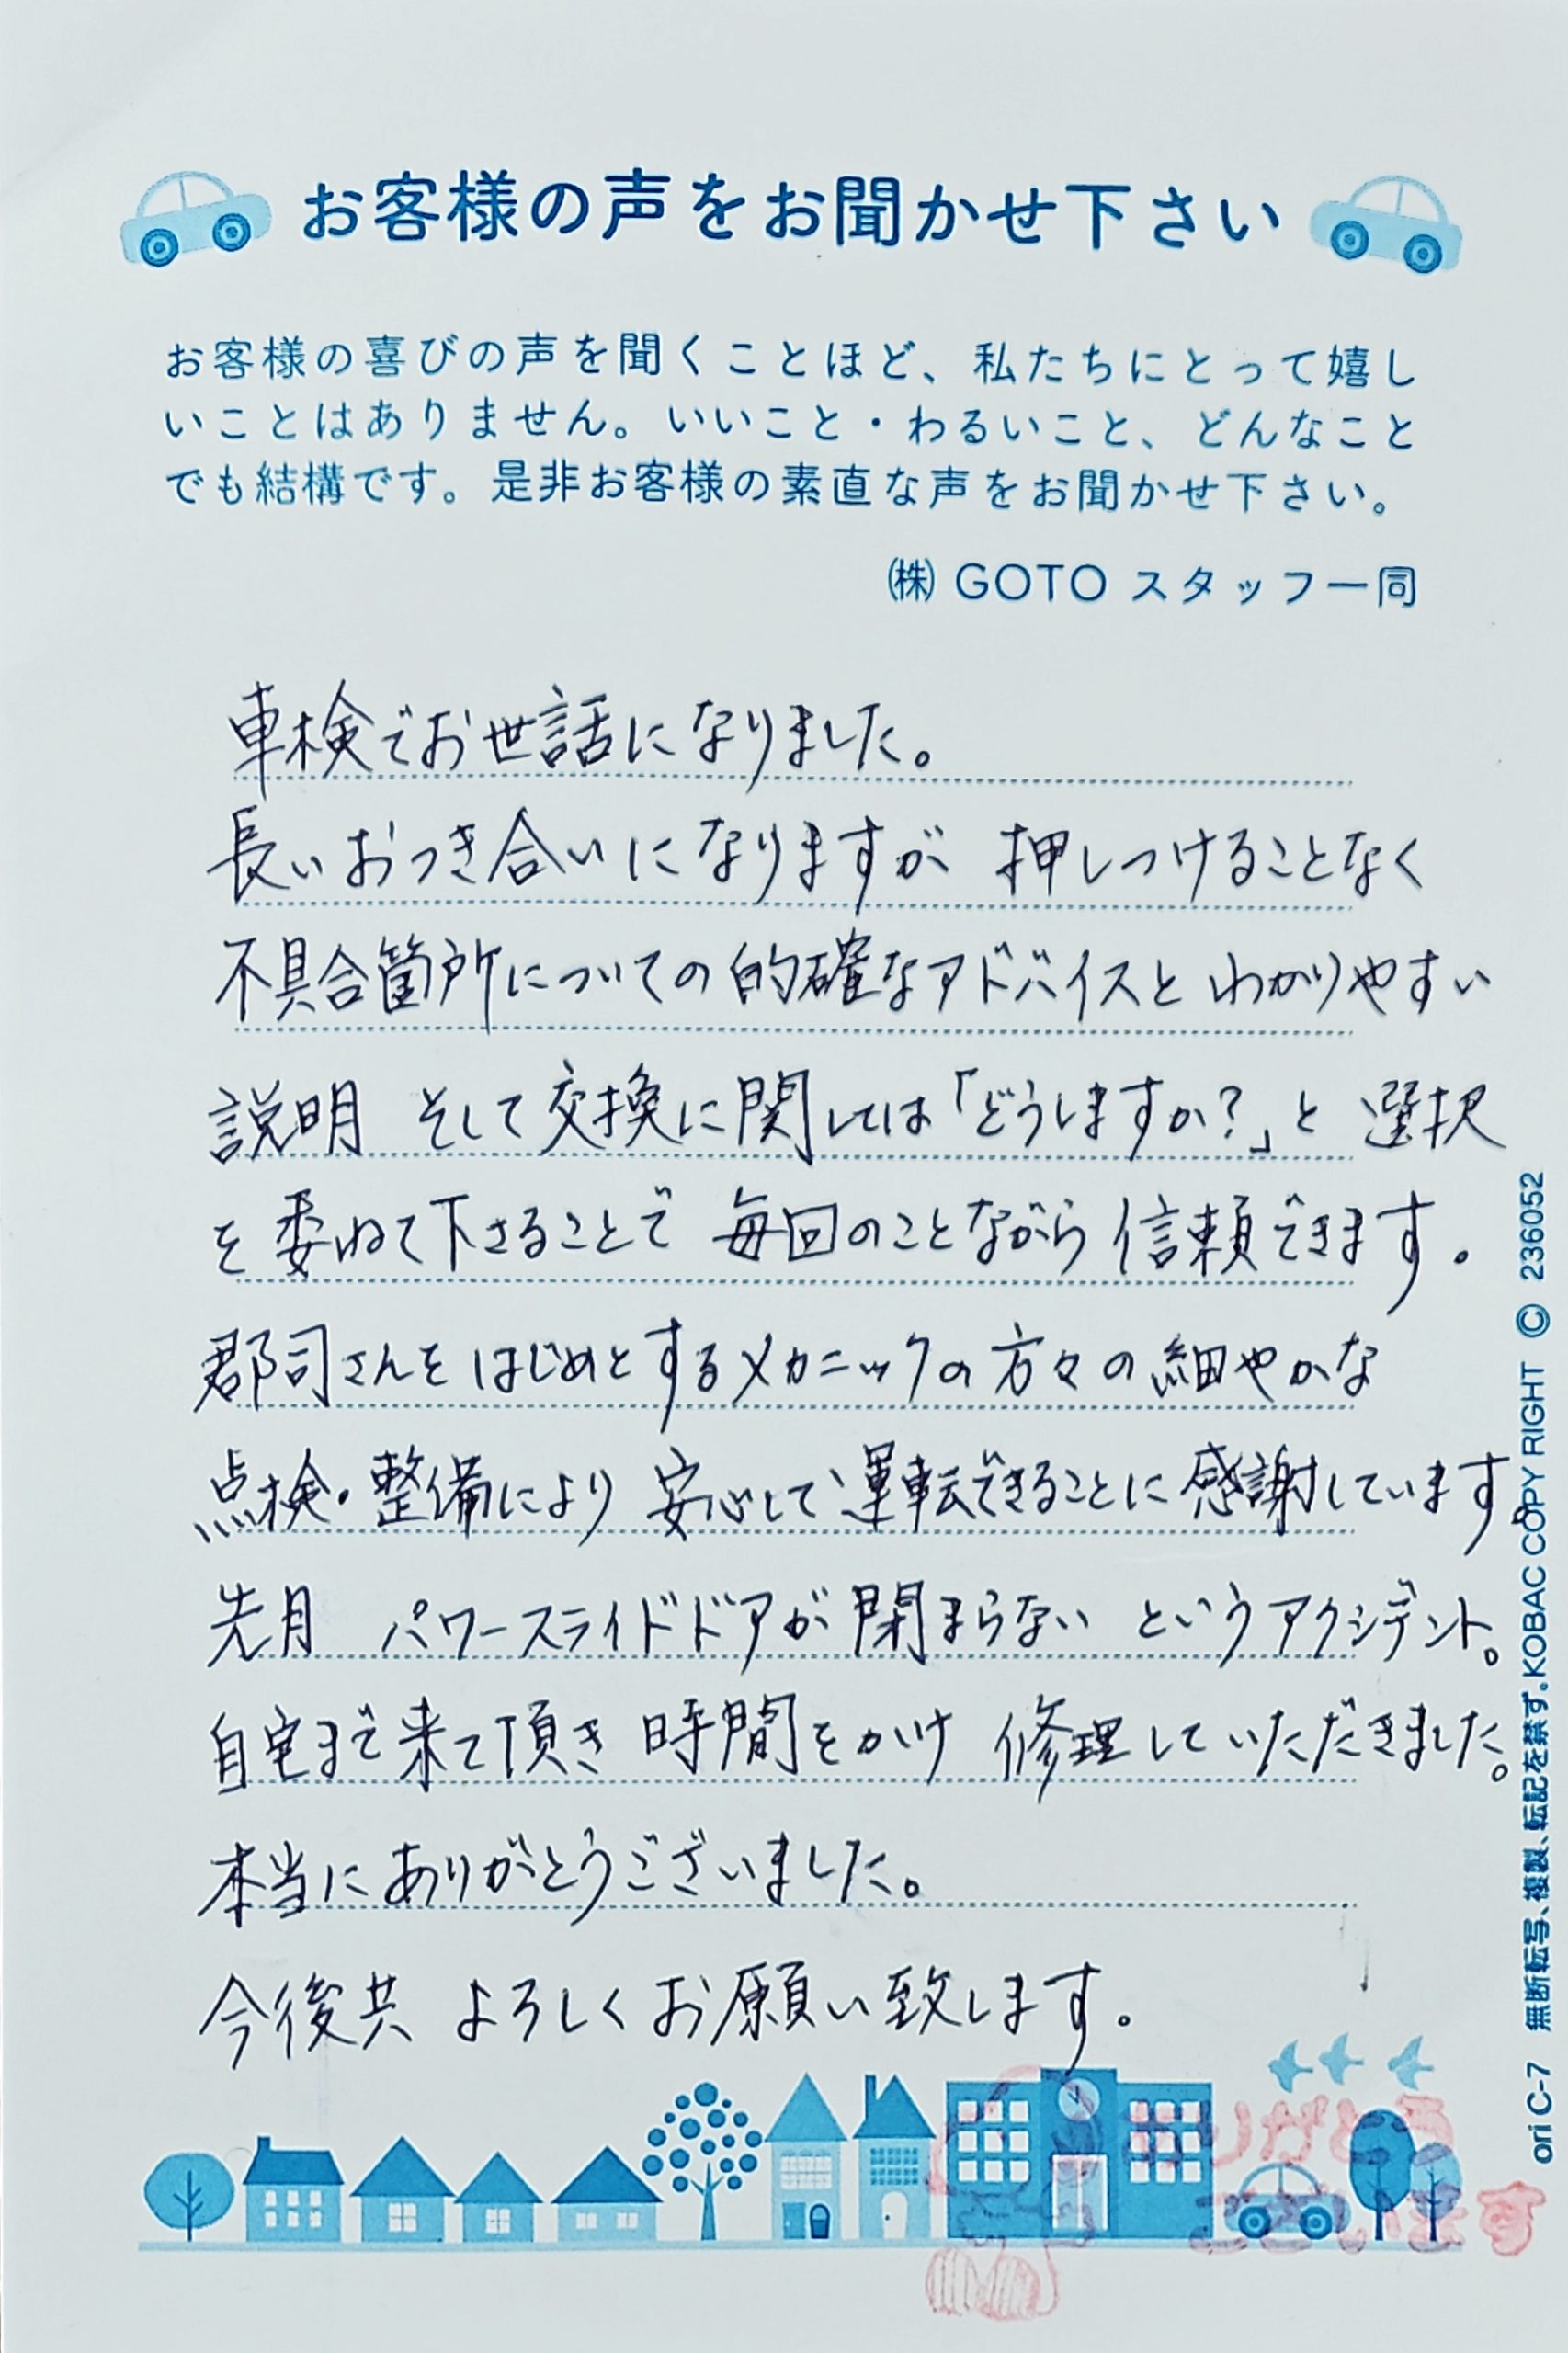 お客様の声をお聞かせ下さい
お客様の喜びの声を聞くことほど、私たちにとって嬉し
いことはありません。いいこと・わるいこと、どんなこと
でも結構です。是非お客様の素直な声をお聞かせ下さい。
㈱ GOTO スタッフ一同
車検でお世話になりました。
長いおつき合いになりますが 押しつけることなく
不具合箇所についての的確なアドバイスと わかりやすい
説明 そして交換に関しては「どうしますか?」と 選択
を委ねて下さることで 毎回のことながら信頼できます。
郡司さんをはじめとするメカニックの方々の細やかな
点検・整備により 安心して運転できることに感謝しています。
先月 パワースライドドアが閉まらない というアクシデント。
自宅まで来て頂き 時間をかけ 修理していただきました。
本当にありがとうございました。
今後共 よろしくお願い致します。
ori C-7 無断転写、複製、転記を禁ず。KOBAC COPY RIGHT © 236052